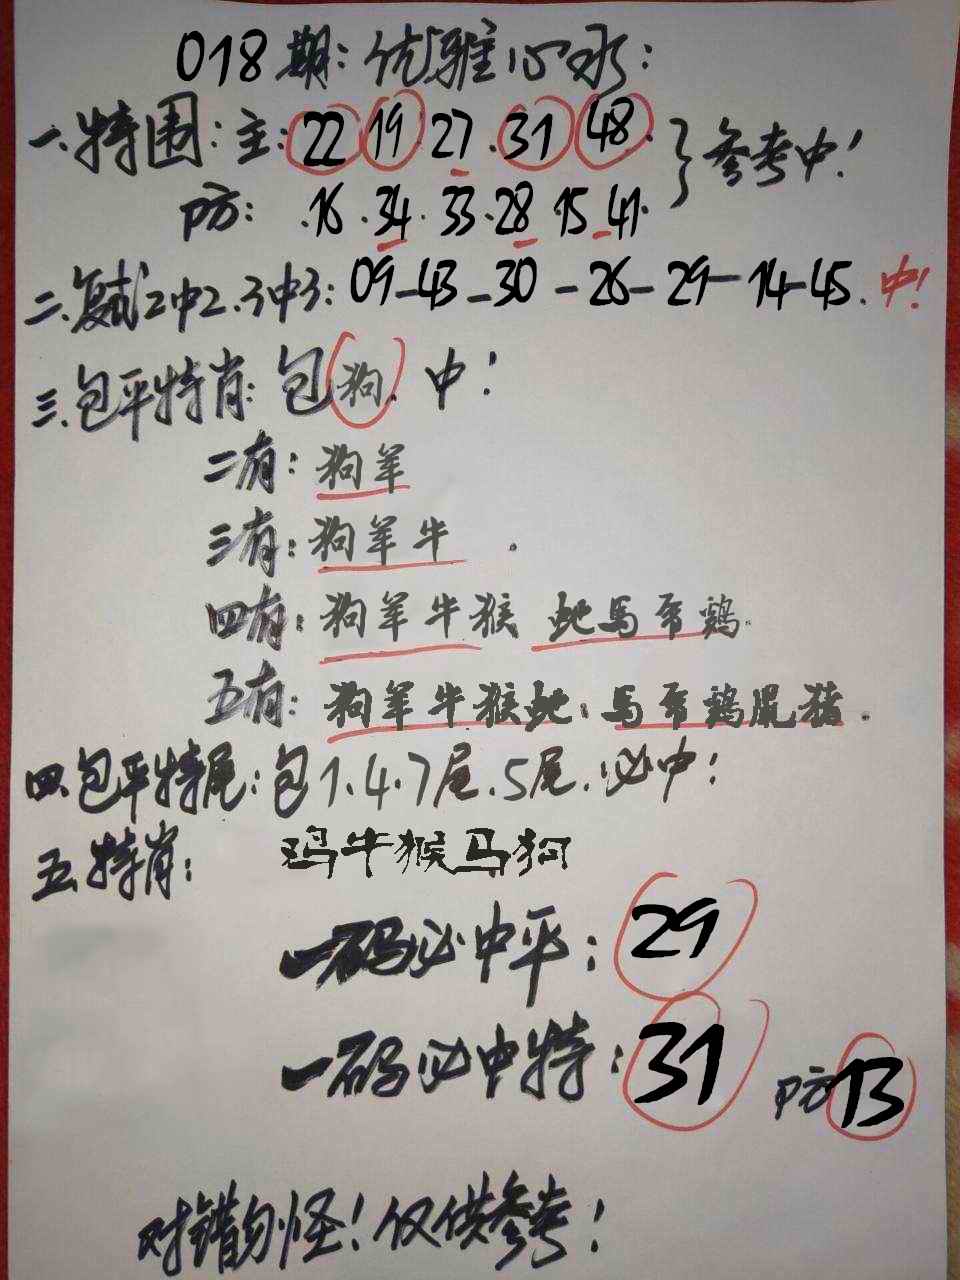 018期：优雅心水：
一、特围：主：22 19 27．31 48．
参考中！
防：．16．34．33．28 15 41．
二、复式2中2、3中3：09—43—30—26—29—14—45．中！
三、包平特肖：包狗．中！
二有：狗羊
三有：狗羊牛．
四有：狗羊牛猴 蛇马兔鸡．
五有：狗羊牛猴蛇．马兔鸡鼠猪．
四、包平特尾：包1．4．7尾．5尾．必中！
五、特肖：鸡牛猴马狗
一码必中平：29
一码必中特：31 防13
对错勿怪！仅供参考！